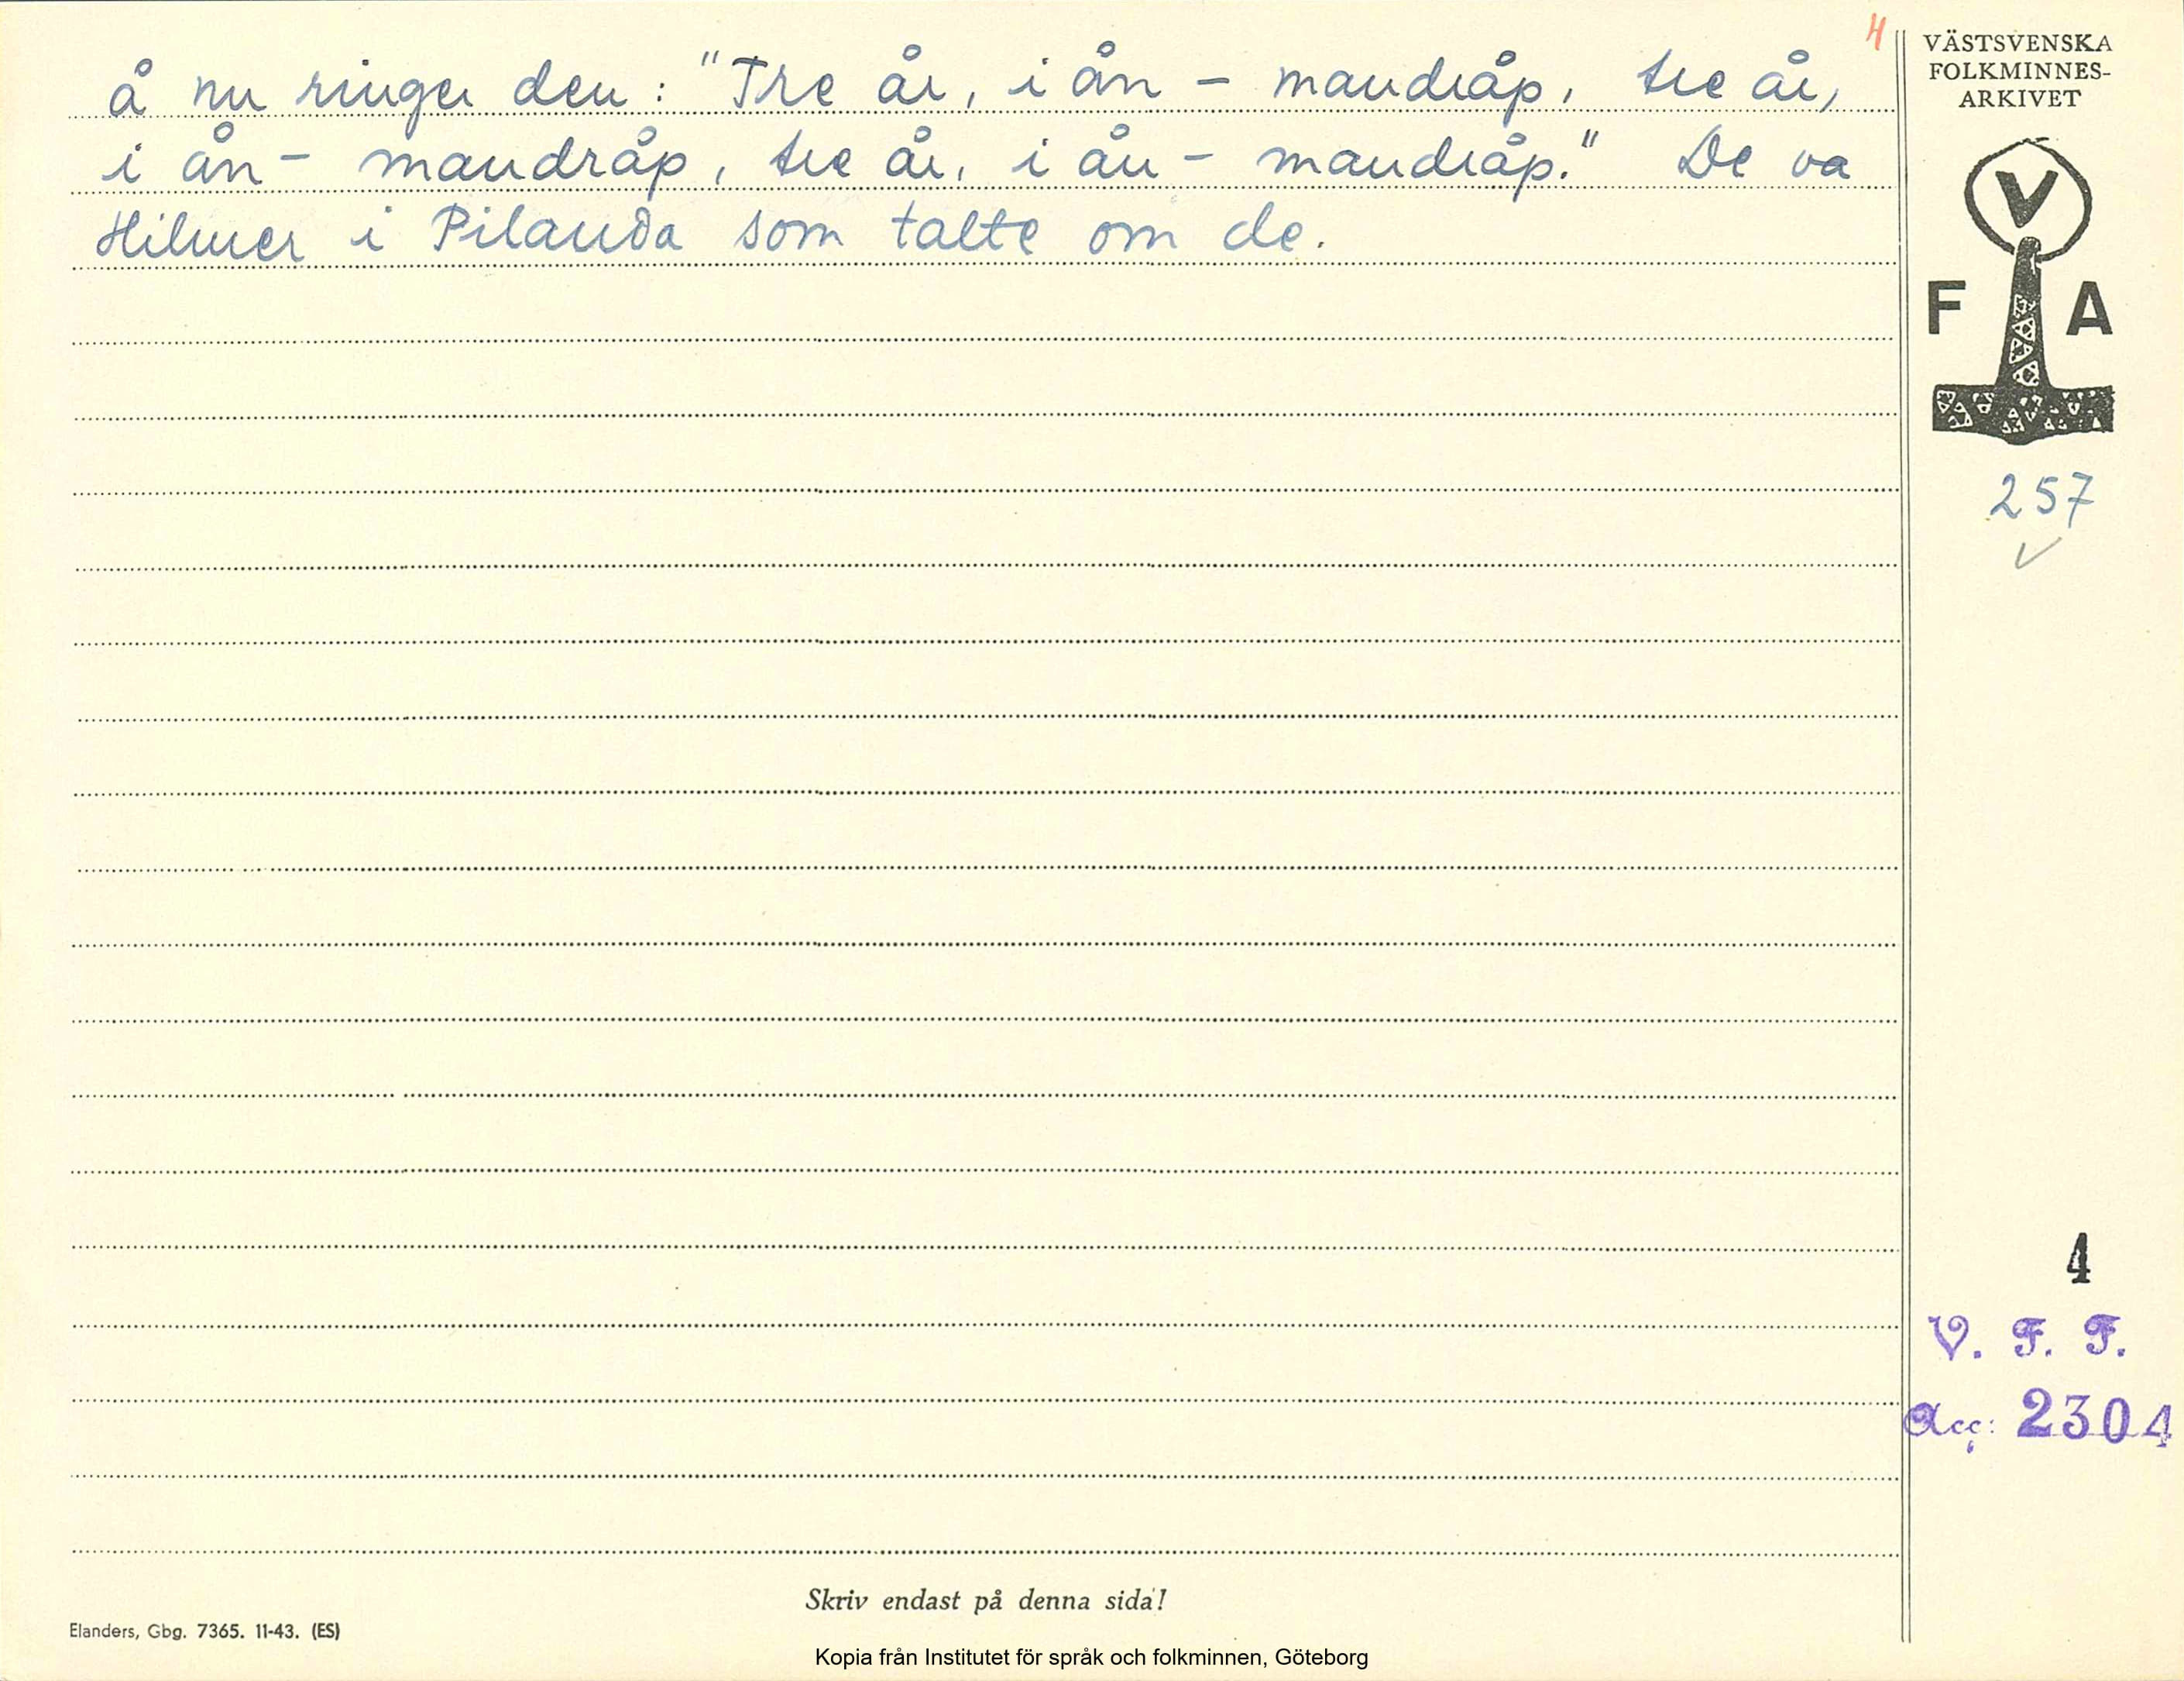 å nu ringer den: "Tre år, i ån – mandråp, tre år,
i ån – mandråp, tre år, i ån – mandråp." De va
Hilmer i Pilanda som talte om de.
4
VÄSTSVENSKA
FOLKMINNES-
ARKIVET
V
F A
257
4
V. F. F.
Acc: 2304
Skriv endast på denna sida!
Elanders, Gbg. 7365. 11-43. (ES)
Kopia från Institutet för språk och folkminnen, Göteborg